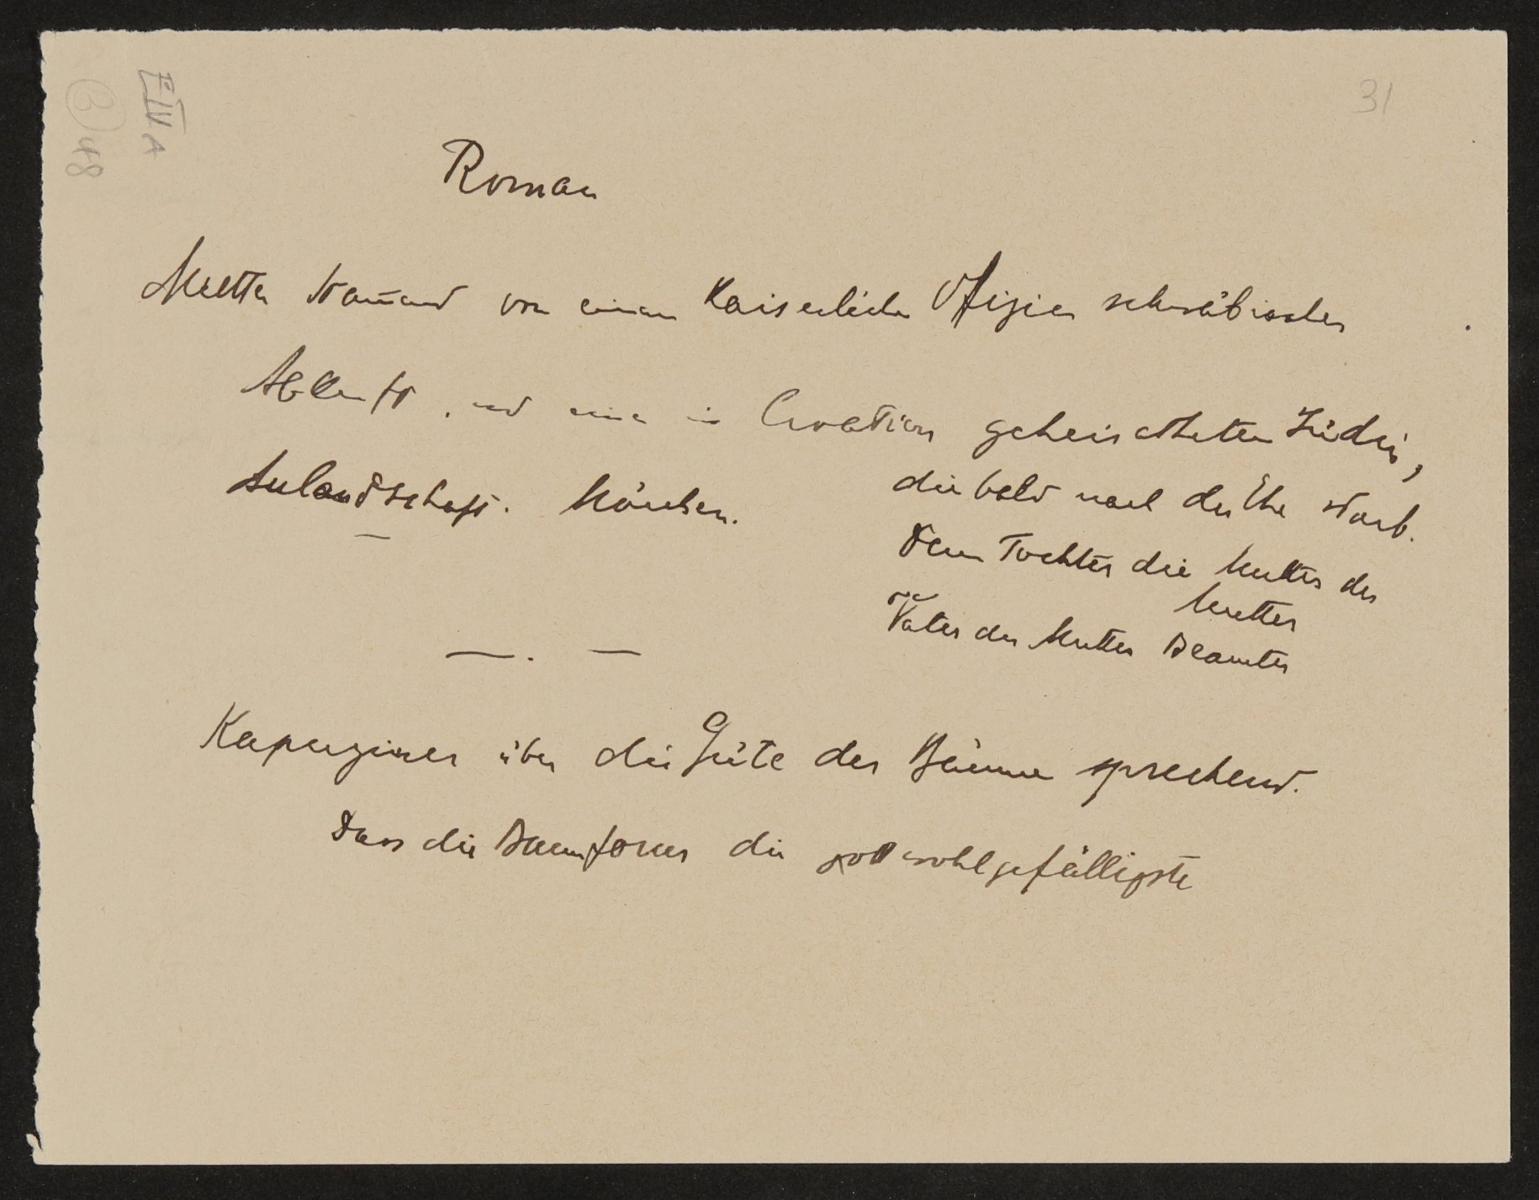 31
E IV A
B 48
Roman
Mutter stammend von einem Kaiserlichen Offizier schwäbischer
Abkunft, und einer in Croatien geheiratheten Jüdin,
die bald nach der Ehe starb.
Aulandschaft. Mönchen.
Deren Tochter die Mutter der
Mutter
Vater der Mutter Beamter
Kapuziner über die Güte der Bäume sprechend.
Dass die Baumform die gottwohlgefälligste